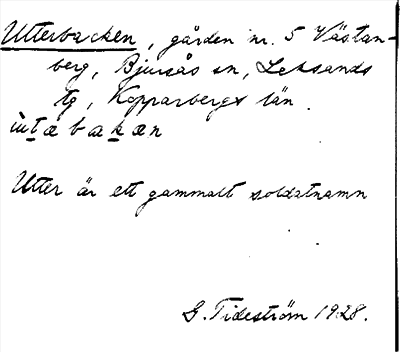 Utterbacken, gården nr. 5 Västan-
berg, Bjursås sn, Leksands
tg, Kopparbergs län.
ùtæbakæn
Utter är ett gammalt soldatnamn
G. Tideström 1928.